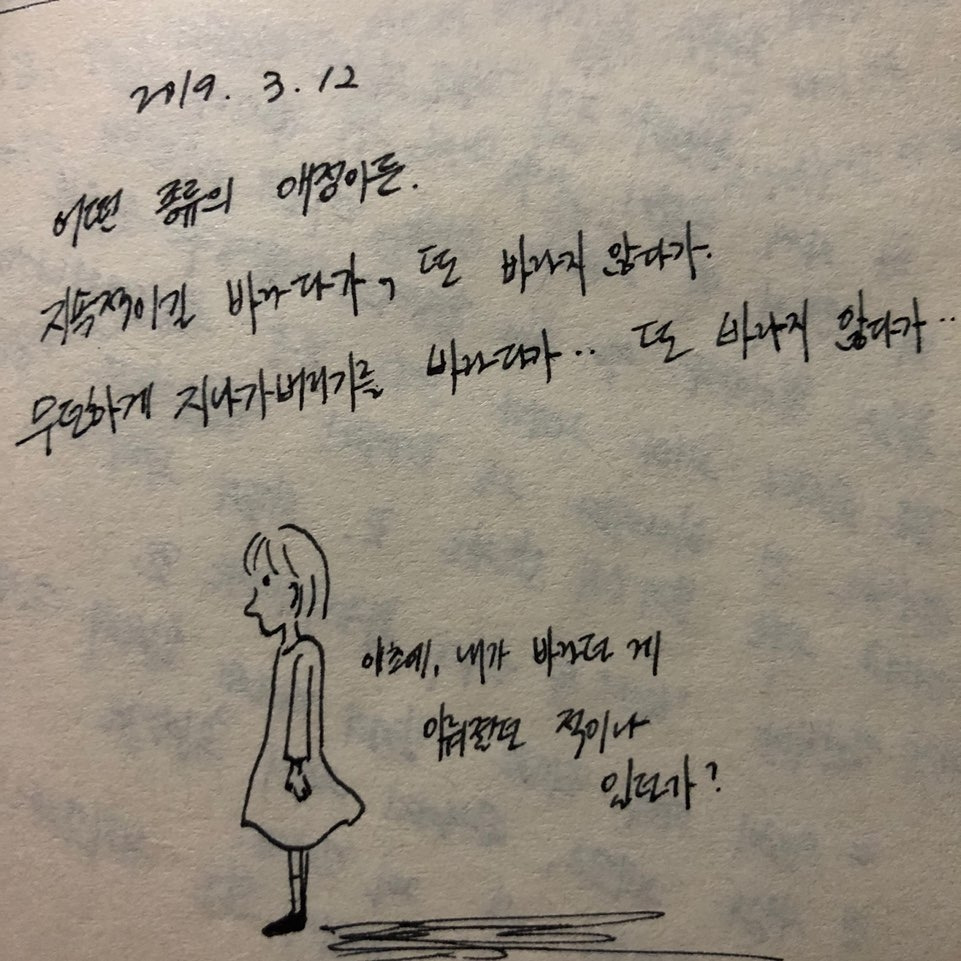 2019. 3. 12
어떤 종류의 애정이든.
지속적이길 바라다가, 또 바라지 않다가.
무던하게 지나가버리기를 바라다가.. 또 바라지 않다가..
애초에, 내가 바라던 게
이뤄졌던 적이나
있던가?